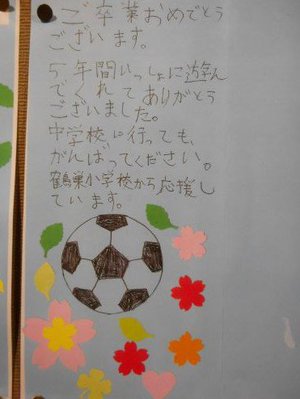 ご卒業おめでとう
ございます。
5年間いっしょに遊んん
でくれてありがとう
ございました。
中学校に行っても、
がんばってください。
鶴巣小学校から応援し
ています。